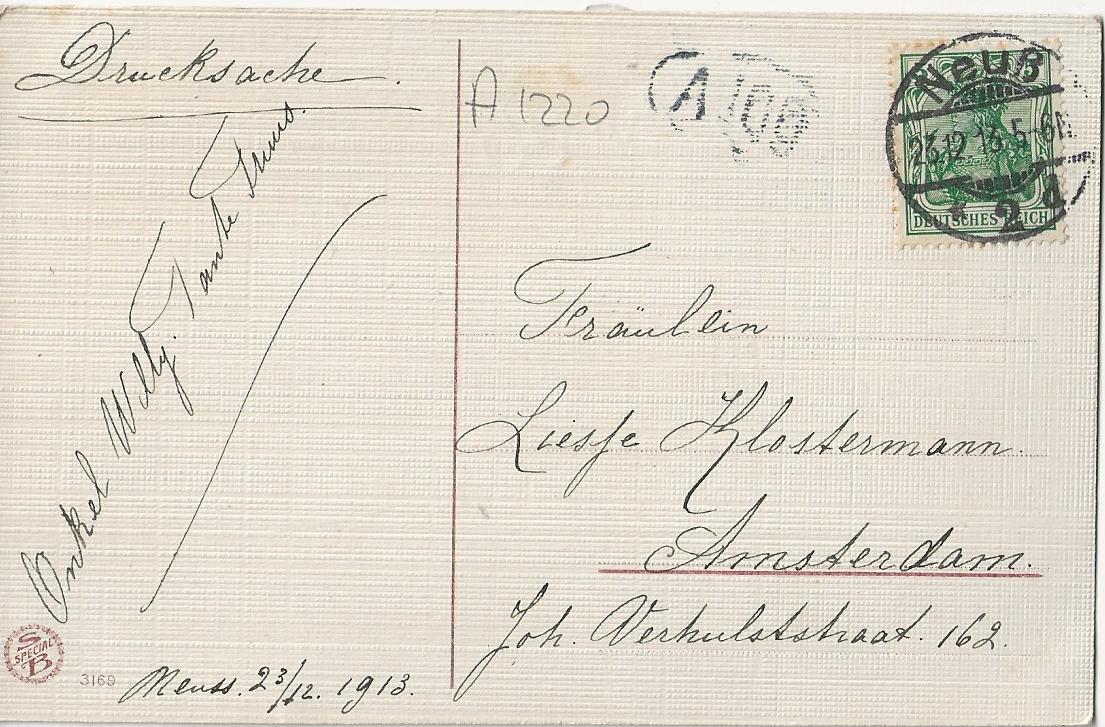 Drucksache.
Onkel Willy. Tante
Neuss. 23/12. 1913.
S
SPECIAL
B
3169
A 1220
1
Neuß
23.12 13.5-6N
* 2 d
DEUTSCHES REICH
Fräulein
Liesje Klostermann.
Amsterdam.
Joh. Verhulststraat. 162.